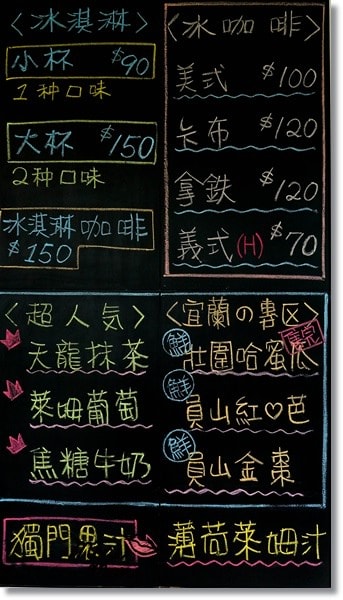 〈冰淇淋〉
小杯 $90
1种口味
大杯 $150
2种口味
冰淇淋咖啡
$150
〈冰咖啡〉
美式 $100
卡布 $120
拿鉄 $120
義式(H) $70
〈超人気〉
天龍抹茶
萊姆葡萄
焦糖牛奶
〈宜蘭の專区〉
鮮 壯圍哈蜜瓜
鮮 員山紅♡芭
鮮 員山金棗
獨門果汁
薄荷萊姆汁